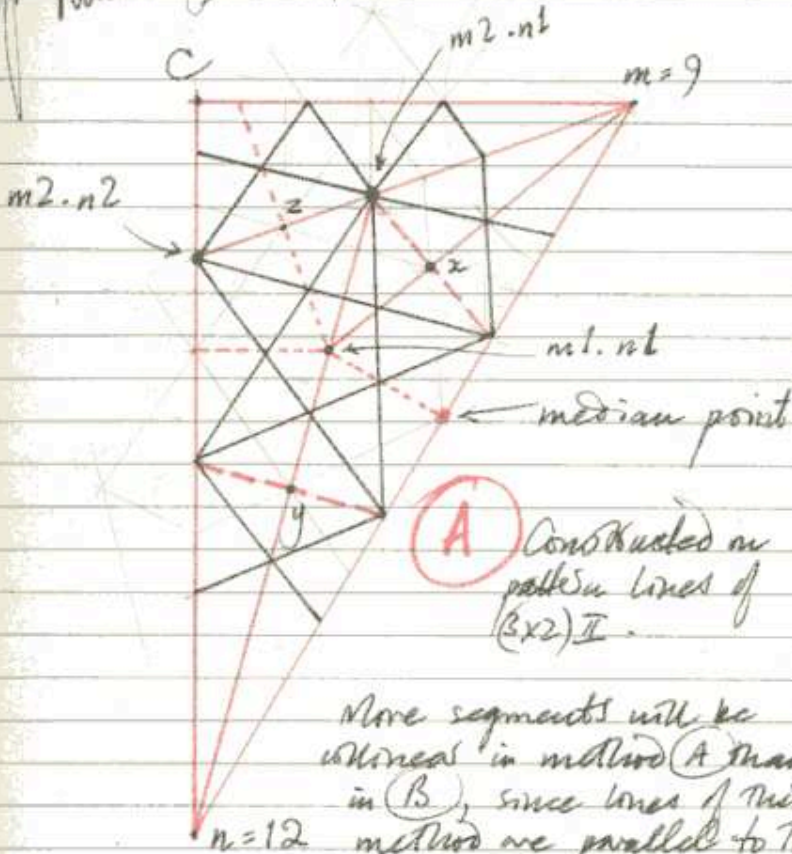 m2.n1
C
m=9
m2.n2
z
x
m1.n1
median point
y
A
Constructed on
pattern lines of
(3x2)II.
More segments will be
collinear in method A than
in B, since lines of this
n=12 method are parallel to